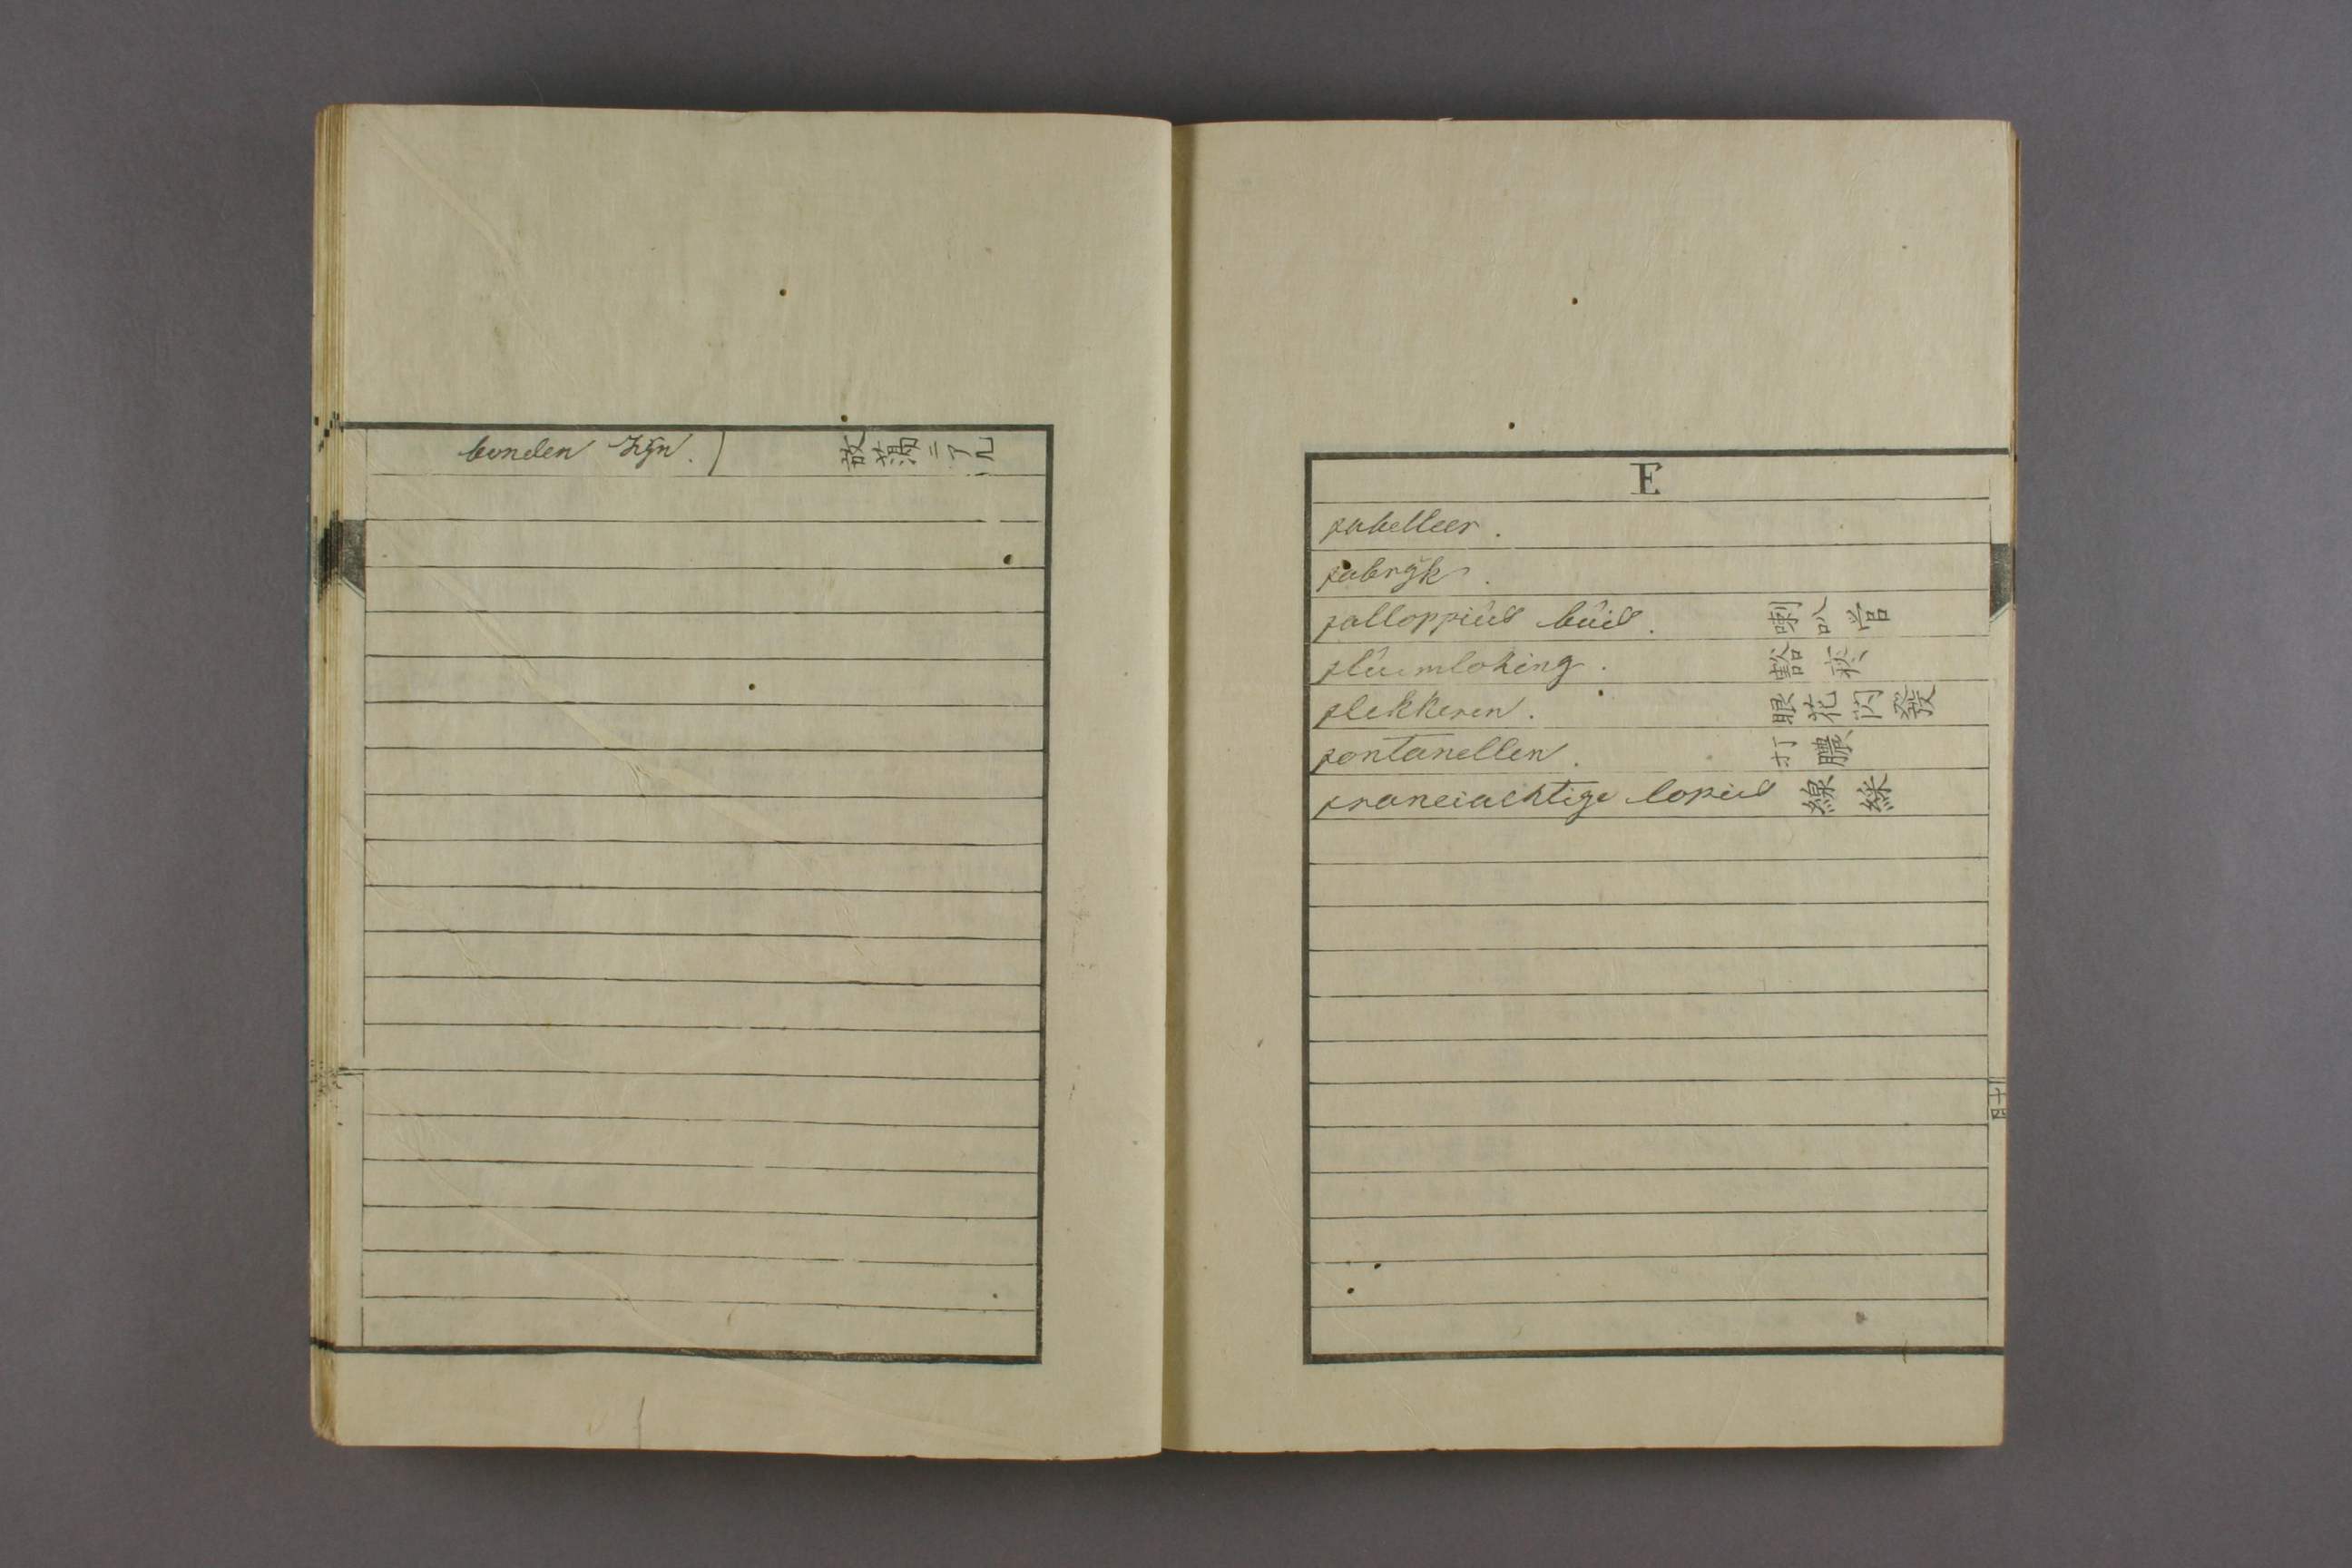 bonden zijn. 放蕩ニ了ル
E
fabelleer.
fabrijk.
falloppius buis. 喇叭管
fluimlozing. 豁痰
flekkeren. 眼花閃發
fontanellen. 打膿
franeiachtige lopius 線綵
十四